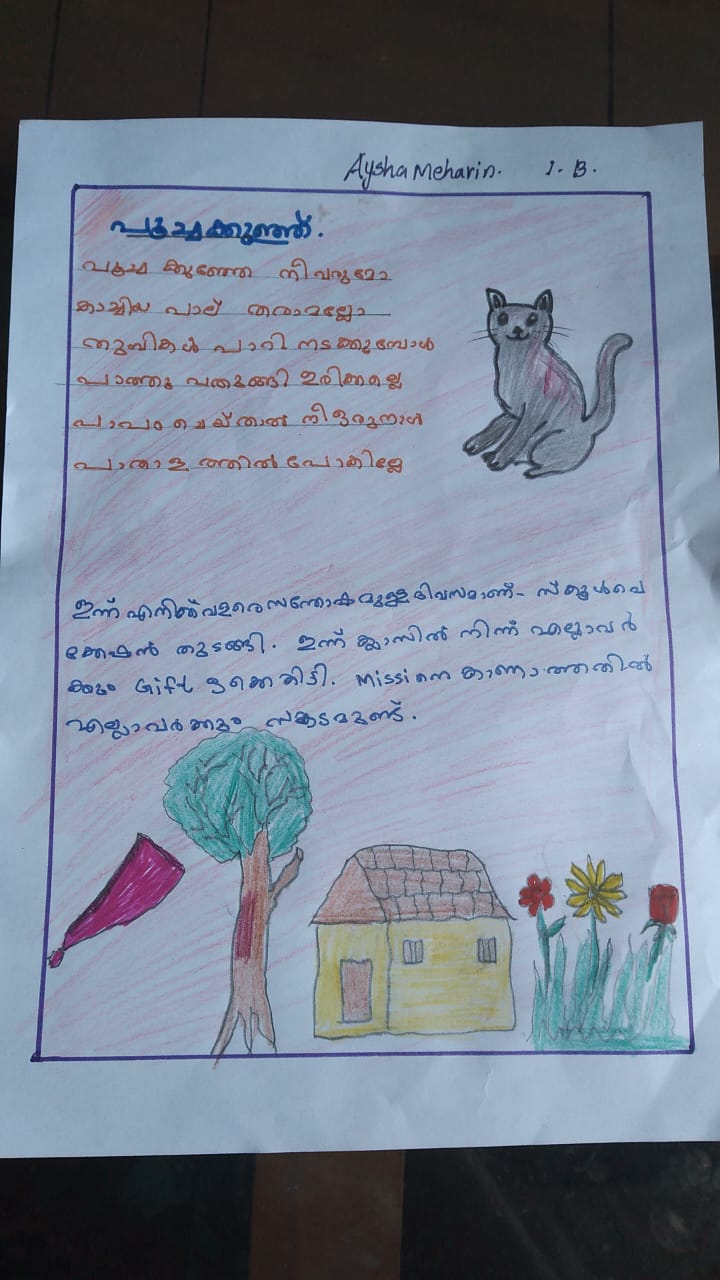 Aysha Meharin. I. B.
പൂച്ചക്കുഞ്ഞ്.
പൂച്ച കുഞ്ഞേ നീ വരുമോ
കാച്ചിയ പാല് തരാമല്ലോ
തുമ്പികൾ പാറി നടക്കുമ്പോൾ
പാത്തു പതുങ്ങി ഇരിക്കല്ലെ
പാപം ചെയ്താൽ നീ ഒരുനാൾ
പാതാള ത്തിൽ പോകില്ലേ
ഇന്ന് എനിക്ക് വളരെ സന്തോഷമുള്ള ദിവസമാണ്- സ്കൂൾ വെ
ക്കേഷൻ തുടങ്ങി. ഇന്ന് ക്ലാസിൽ നിന്ന് എല്ലാവർ
ക്കും Gift ഒക്കെ കിട്ടി. Missനെ കാണാത്തതിൽ
എല്ലാവർക്കും സങ്കടമുണ്ട്.